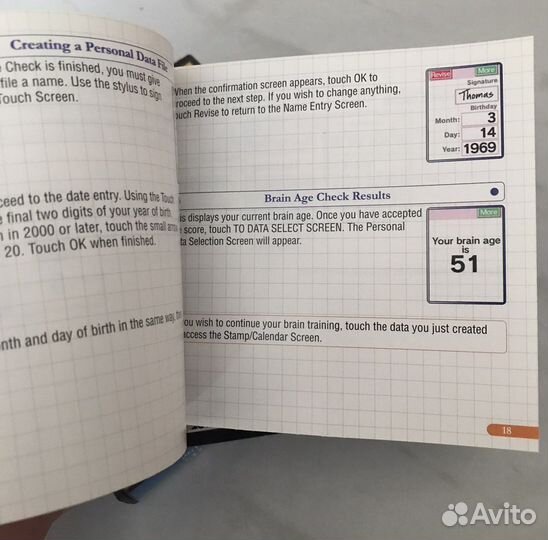 Creating a Personal Data File
Check is finished, you must give
file a name. Use the stylus to sign
Touch Screen.
ceed to the date entry. Using the Touch
final two digits of your year of birth.
in 2000 or later, touch the small arrow
20. Touch OK when finished.
nth and day of birth in the same way, 
When the confirmation screen appears, touch OK to
proceed to the next step. If you wish to change anything,
touch Revise to return to the Name Entry Screen.
Revise More
Signature
Thomas
Birthday
Month: 3
Day: 14
Year: 1969
Brain Age Check Results
is displays your current brain age. Once you have accepted
score, touch TO DATA SELECT SCREEN. The Personal
ta Selection Screen will appear.
More
Your brain age
is
51
you wish to continue your brain training, touch the data you just created
access the Stamp/Calendar Screen.
18
Avito